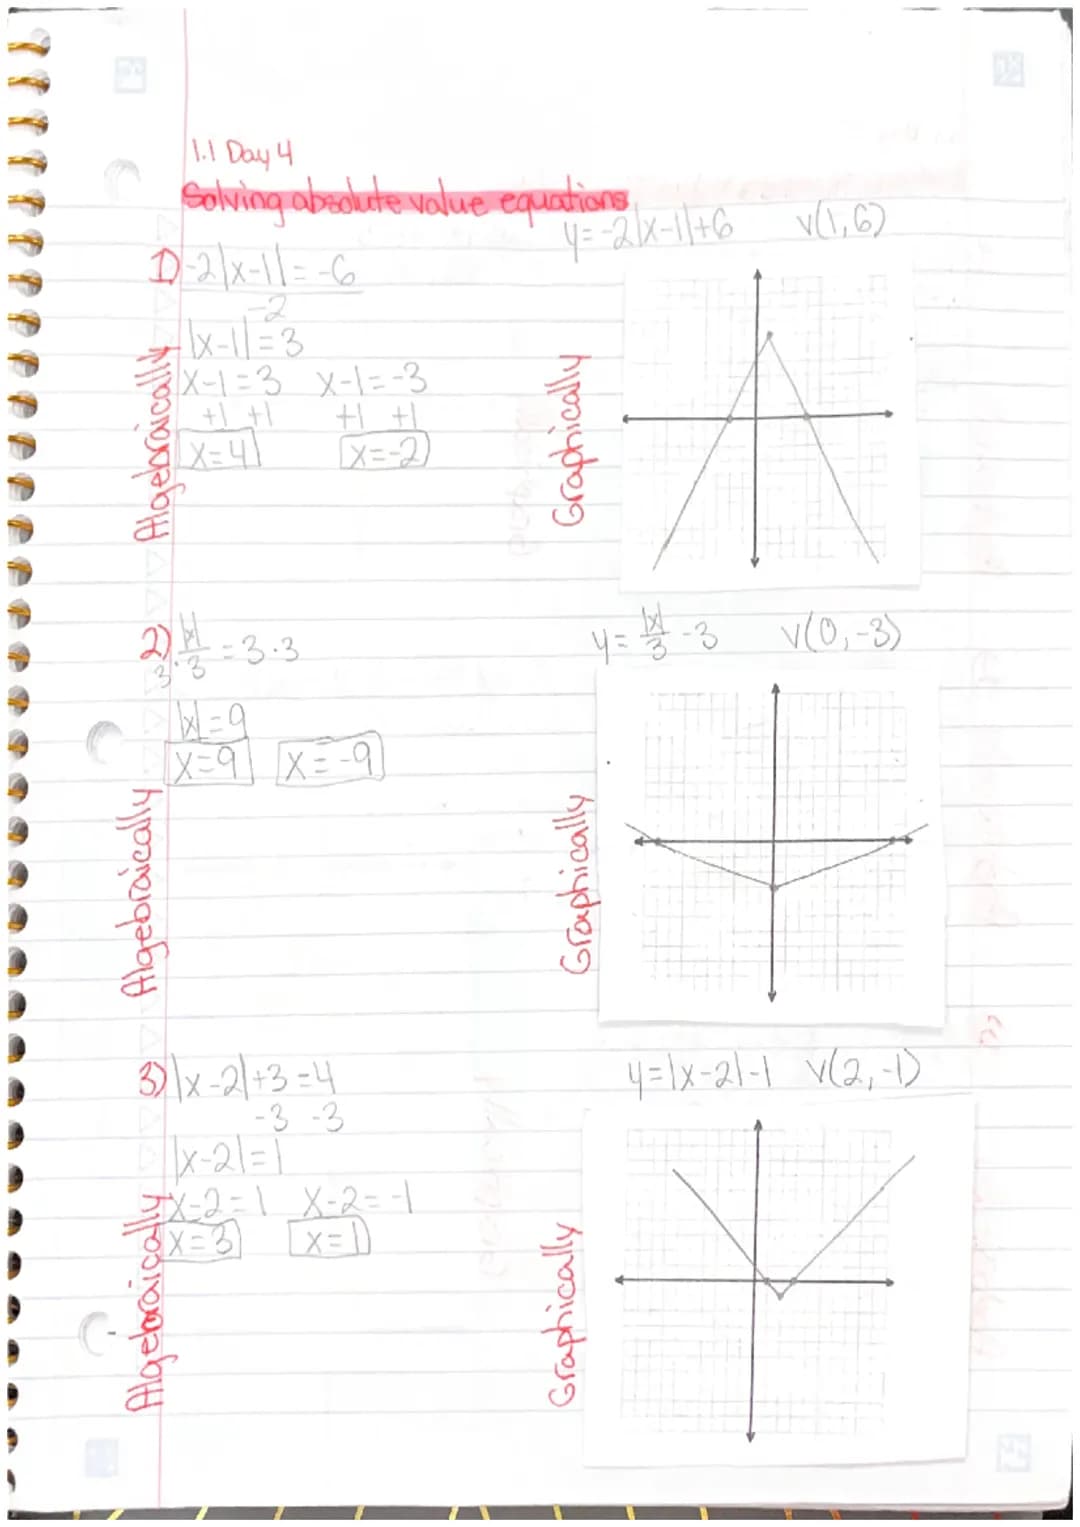 1.1 Day 4
Solving absolute value equations
y=-2|x-1|+6 v(1,6)
1) -2|x-1|=-6
-2
|x-1|=3
x-1=3 x-1=-3
+1 +1 +1 +1
x=4 x=-2
Algebraically
Graphically
2) 3·|x|/3=3·3
y=|x|/3-3 v(0,-3)
|x|=9
x=9 x=-9
Algebraically
Graphically
3) |x-2|+3=4
-3 -3
y=|x-2|-1 v(2,-1)
|x-2|=1
x-2=1 x-2=-1
x=3 x=1
Algebraically
Graphically